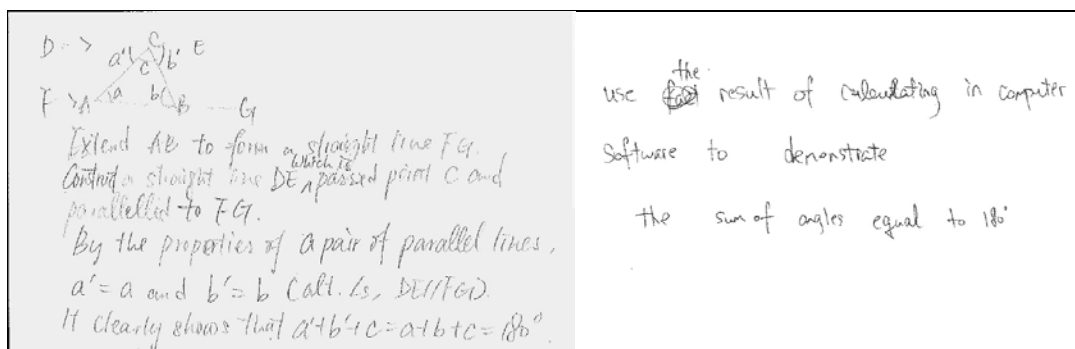 D C E
a' c b'
F A a b B G
Extend AB to form a straight line FG.
Construct a straight line DE which is passed point C and
parallelled to FG.
By the properties of a pair of parallel lines,
a' = a and b' = b (alt. ∠s, DE//FG).
It clearly shows that a'+b'+c = a+b+c = 180°.
use the result of calculating in computer
software to demonstrate
the sum of angles equal to 180°